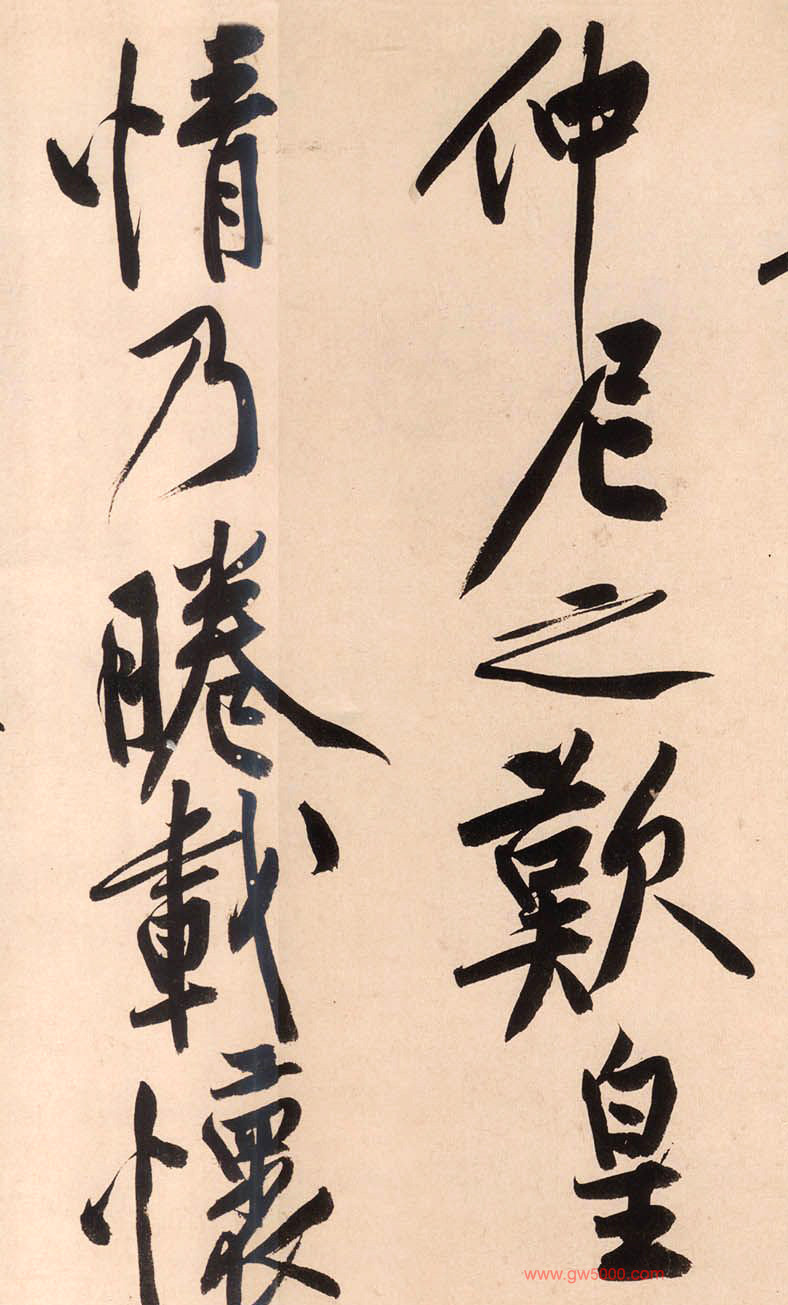 仲尼之歎皇
情乃睠載懷
www.gw5000.com